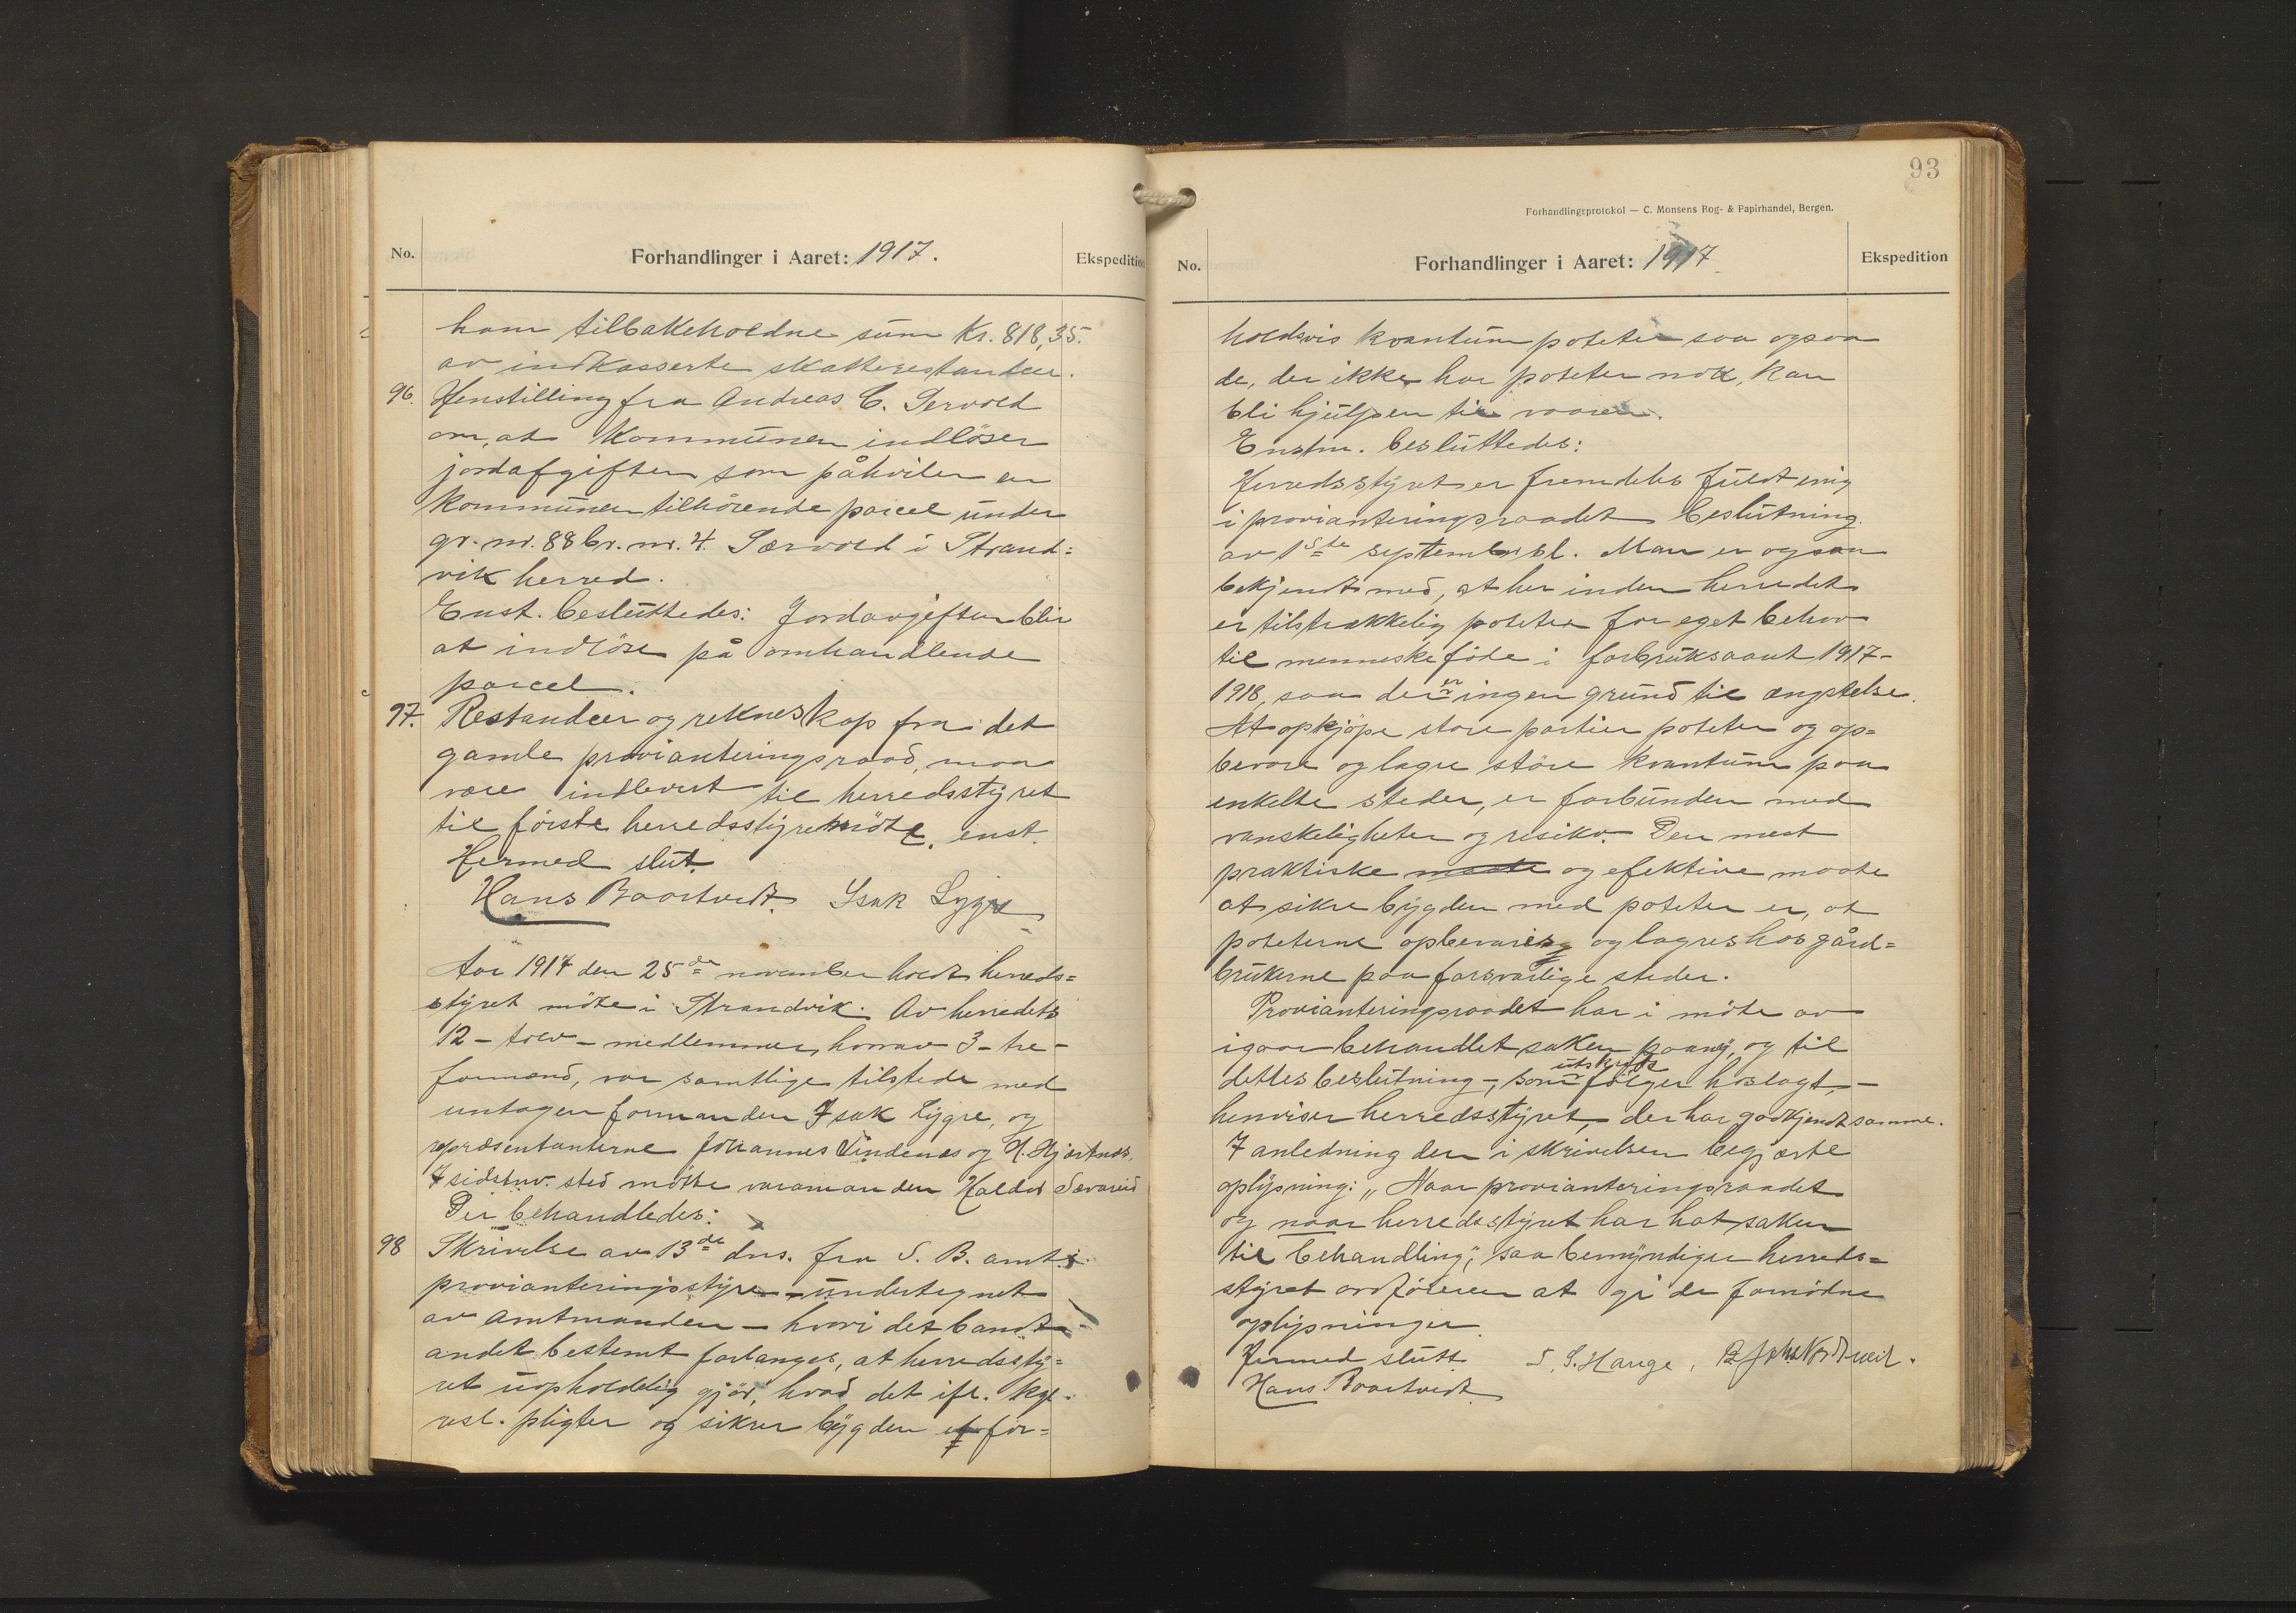 No.
Forhandlinger i Aaret: 1917.
Ekspedition
ham tilbakeholdne sum Kr. 818,35.
av indkasserte skatterestandser.
96. Henstilling fra Andreas C. Tervold
om, at Kommunen indløser
jordafgiften som påhviler en
Kommunen tilhørende parcel under
gr. nr. 88 br. nr. 4. Tærvold i Strand=
vik herred.
Enst. besluttedes: Jordavgiften blir
at indløse på omhandlende
parcel.
97. Restandser og rekneskap fra det
gamle provianteringsraad, maa
være indlevert til herredsstyret
til første herredsstyremøte. enst.
Hermed slut.
Hans Baartvedt. Isak Lygre
Aar 1917 den 25de november holdt herreds=
styret møte i Strandvik. Av herredets
12 - tolv - medlemmer, hvorav 3 - tre -
formænd, var samtlige tilstede med
untagen formanden Isak Lygre, og
repræsentanterne Johannes Vindenes og H. Hjartnes.
I sidstnv. sted møtte varamanden Haldor Sævareid
Der behandledes:
98 Skrivelse av 13de dns. fra S. B. amts
provianteringsstyre - undertegnet
av Amtmanden - hvori det bandt
andet bestemt forlanges, at herredssty=
ret uopholdelig gjør, hvad det ifl. kgl.
resl. pligter og sikrer bygden et for=
93
Forhandlingsprotokol — C. Monsens Bog- & Papirhandel, Bergen.
No.
Forhandlinger i Aaret: 1917
Ekspedition
holdsvis kvantum poteter saa ogsaa
de, der ikke har poteter nok, kan
bli hjulpen til vaaren.
Enstm. besluttedes:
Herredsstyret er fremdeles fuldt enig
i provianteringsraadets beslutning
av 1ste september sl. Man er ogsaa
bekjendt med, at her inden herredet
er tilstrækkelig poteter for eget behov
til menneskeføde i forbruksaaret 1917-
1918, saa der er ingen grund til ængstelse.
At opkjøpe store partier poteter og op=
bevare og lagre støre kvantum paa
enkelte steder, er forbunden med
vanskeligheter og risiko. Den mest
praktiske maate og efektive maate
at sikre bygden med poteter er, at
poteterne opbevares og lagres hos gård=
brukerne paa forsvarlige steder.
Provianteringsraadet har i møte av
igaar behandlet saken paany, og til
dettes beslutning -, som utskrift følger hoslagt, -
henviser herredsstyret, der har godkjendt samme.
I anledning den i skrivelsen begjærte
oplysning: „Naar provianteringsraadet
og naar herredsstyret har hat saken
til behandling", saa bemyndiger herreds=
styret ordføreren at gi de fornødne
oplysninger
Hermed slutt. S. S. Hauge,
Hans Baartvedt